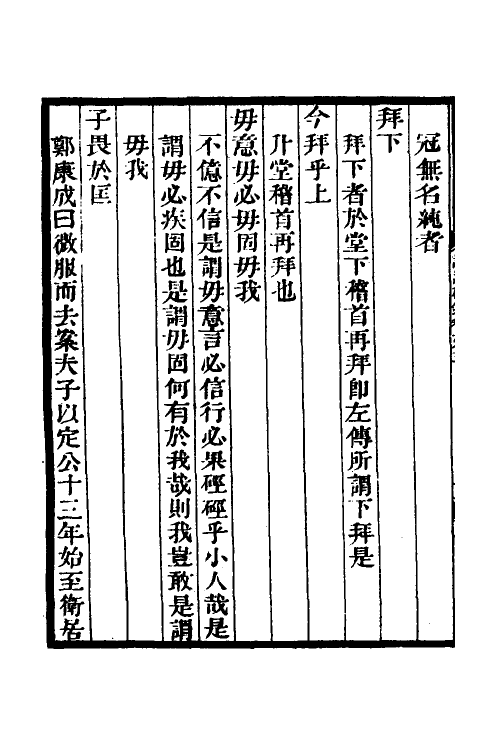 冠無名純者
拜下
拜下者於堂下稽首再拜卽左傳所謂下拜是
今拜乎上
升堂稽首再拜也
毋意毋必毋固毋我
不億不信是謂毋意言必信行必果硜硜乎小人哉是
謂毋必疾固也是謂毋固何有於我哉則我豈敢是謂
毋我
子畏於匡
鄭康成曰微服而去案夫子以定公十三年始至衛居